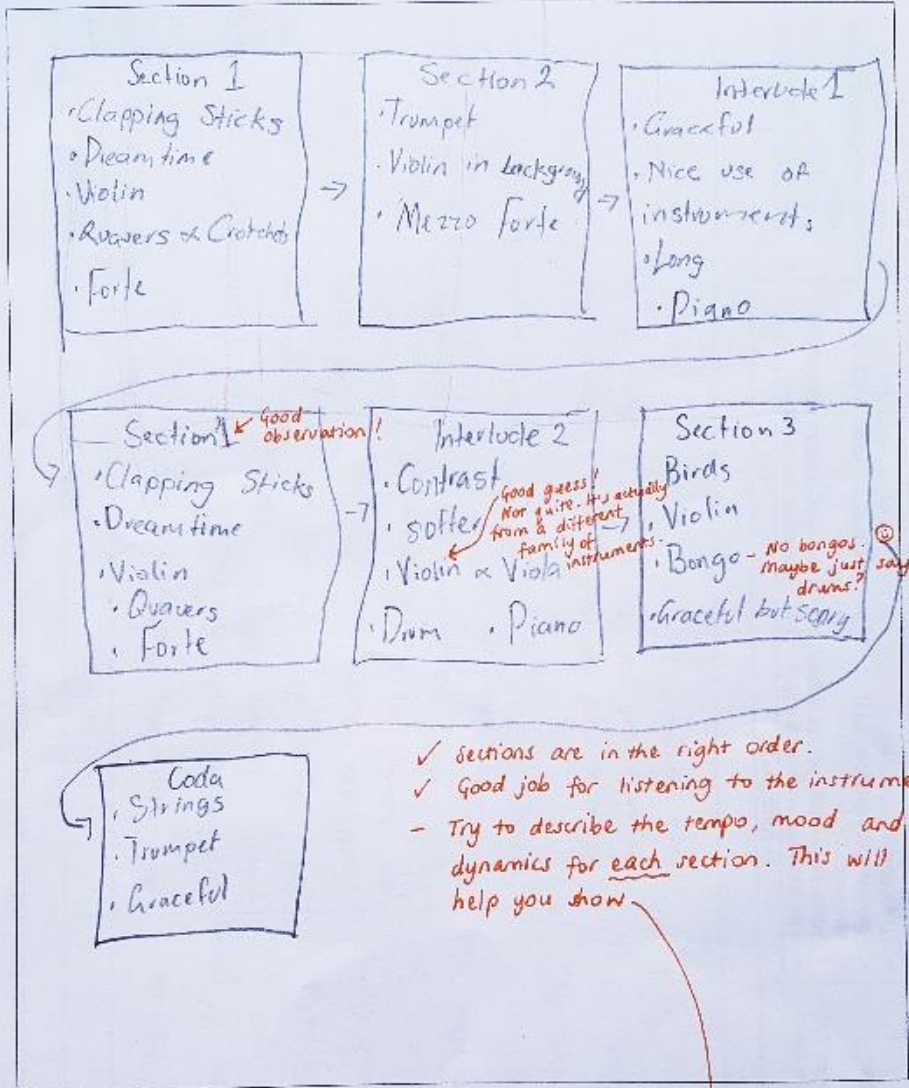 Section 1
• Clapping Sticks
• Dreamtime
• Violin
• Quavers & Crotchets
• Forte
→
Section 2
• Trumpet
• Violin in background
• Mezzo Forte
→
Interlude 1
• Graceful
• Nice use of
instruments
• Long
• Piano
Section 1
Good
observation!
• Clapping Sticks
• Dreamtime
• Violin
• Quavers
• Forte
→
Interlude 2
• Contrast
• softer
Good guess!
Not quite. It's actually
from a different
family of
instruments.
• Violin & Viola
• Drum • Piano
→
Section 3
• Birds
• Violin
• Bongo - No bongos.
maybe just say
drums?
• Graceful but scary
Coda
• Strings
• Trumpet
• Graceful
✓ Sections are in the right order.
✓ Good job for listening to the instrume
- Try to describe the tempo, mood and
dynamics for each section. This will
help you show